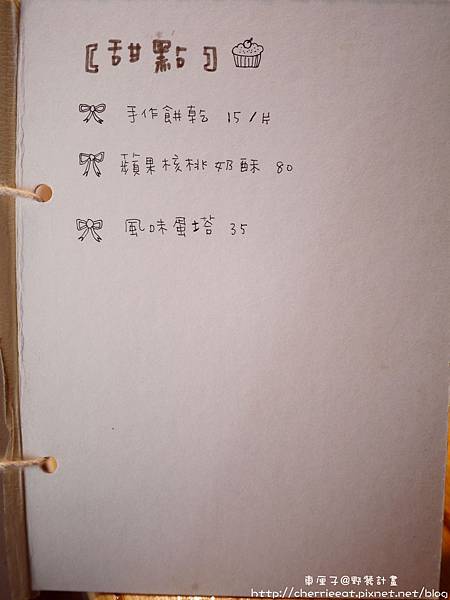 〔甜點〕
手作餅乾 15/片
蘋果核桃奶酥 80
風味蛋塔 35
車厘子@野餐計畫
http://cherrieeat.pixnet.net/blog